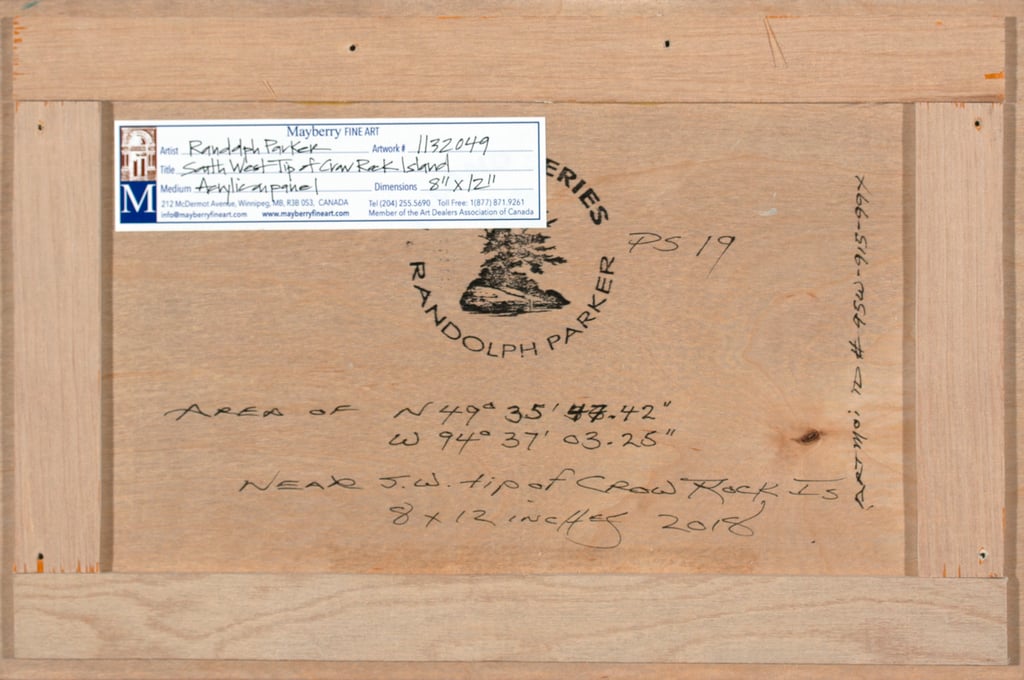 Mayberry FINE ART
Artist Randolph Parker Artwork # 1132049
Title South West Tip of Crow Rock Island
Medium Acrylic on panel Dimensions 8" x 12"
M
212 McDermot Avenue, Winnipeg, MB, R3B 0S3, CANADA Tel (204) 255.5690 Toll Free: 1(877) 871.9261
info@mayberryfineart.com www.mayberryfineart.com Member of the Art Dealers Association of Canada
ERIES
RANDOLPH PARKER
PS 19
AREA OF N 49° 35' 47.42"
W 94° 37' 03.25"
NEAR S.W. tip of CROW ROCK Is
8 x 12 inches 2018
ARTMOI ID # 95W-915-99X